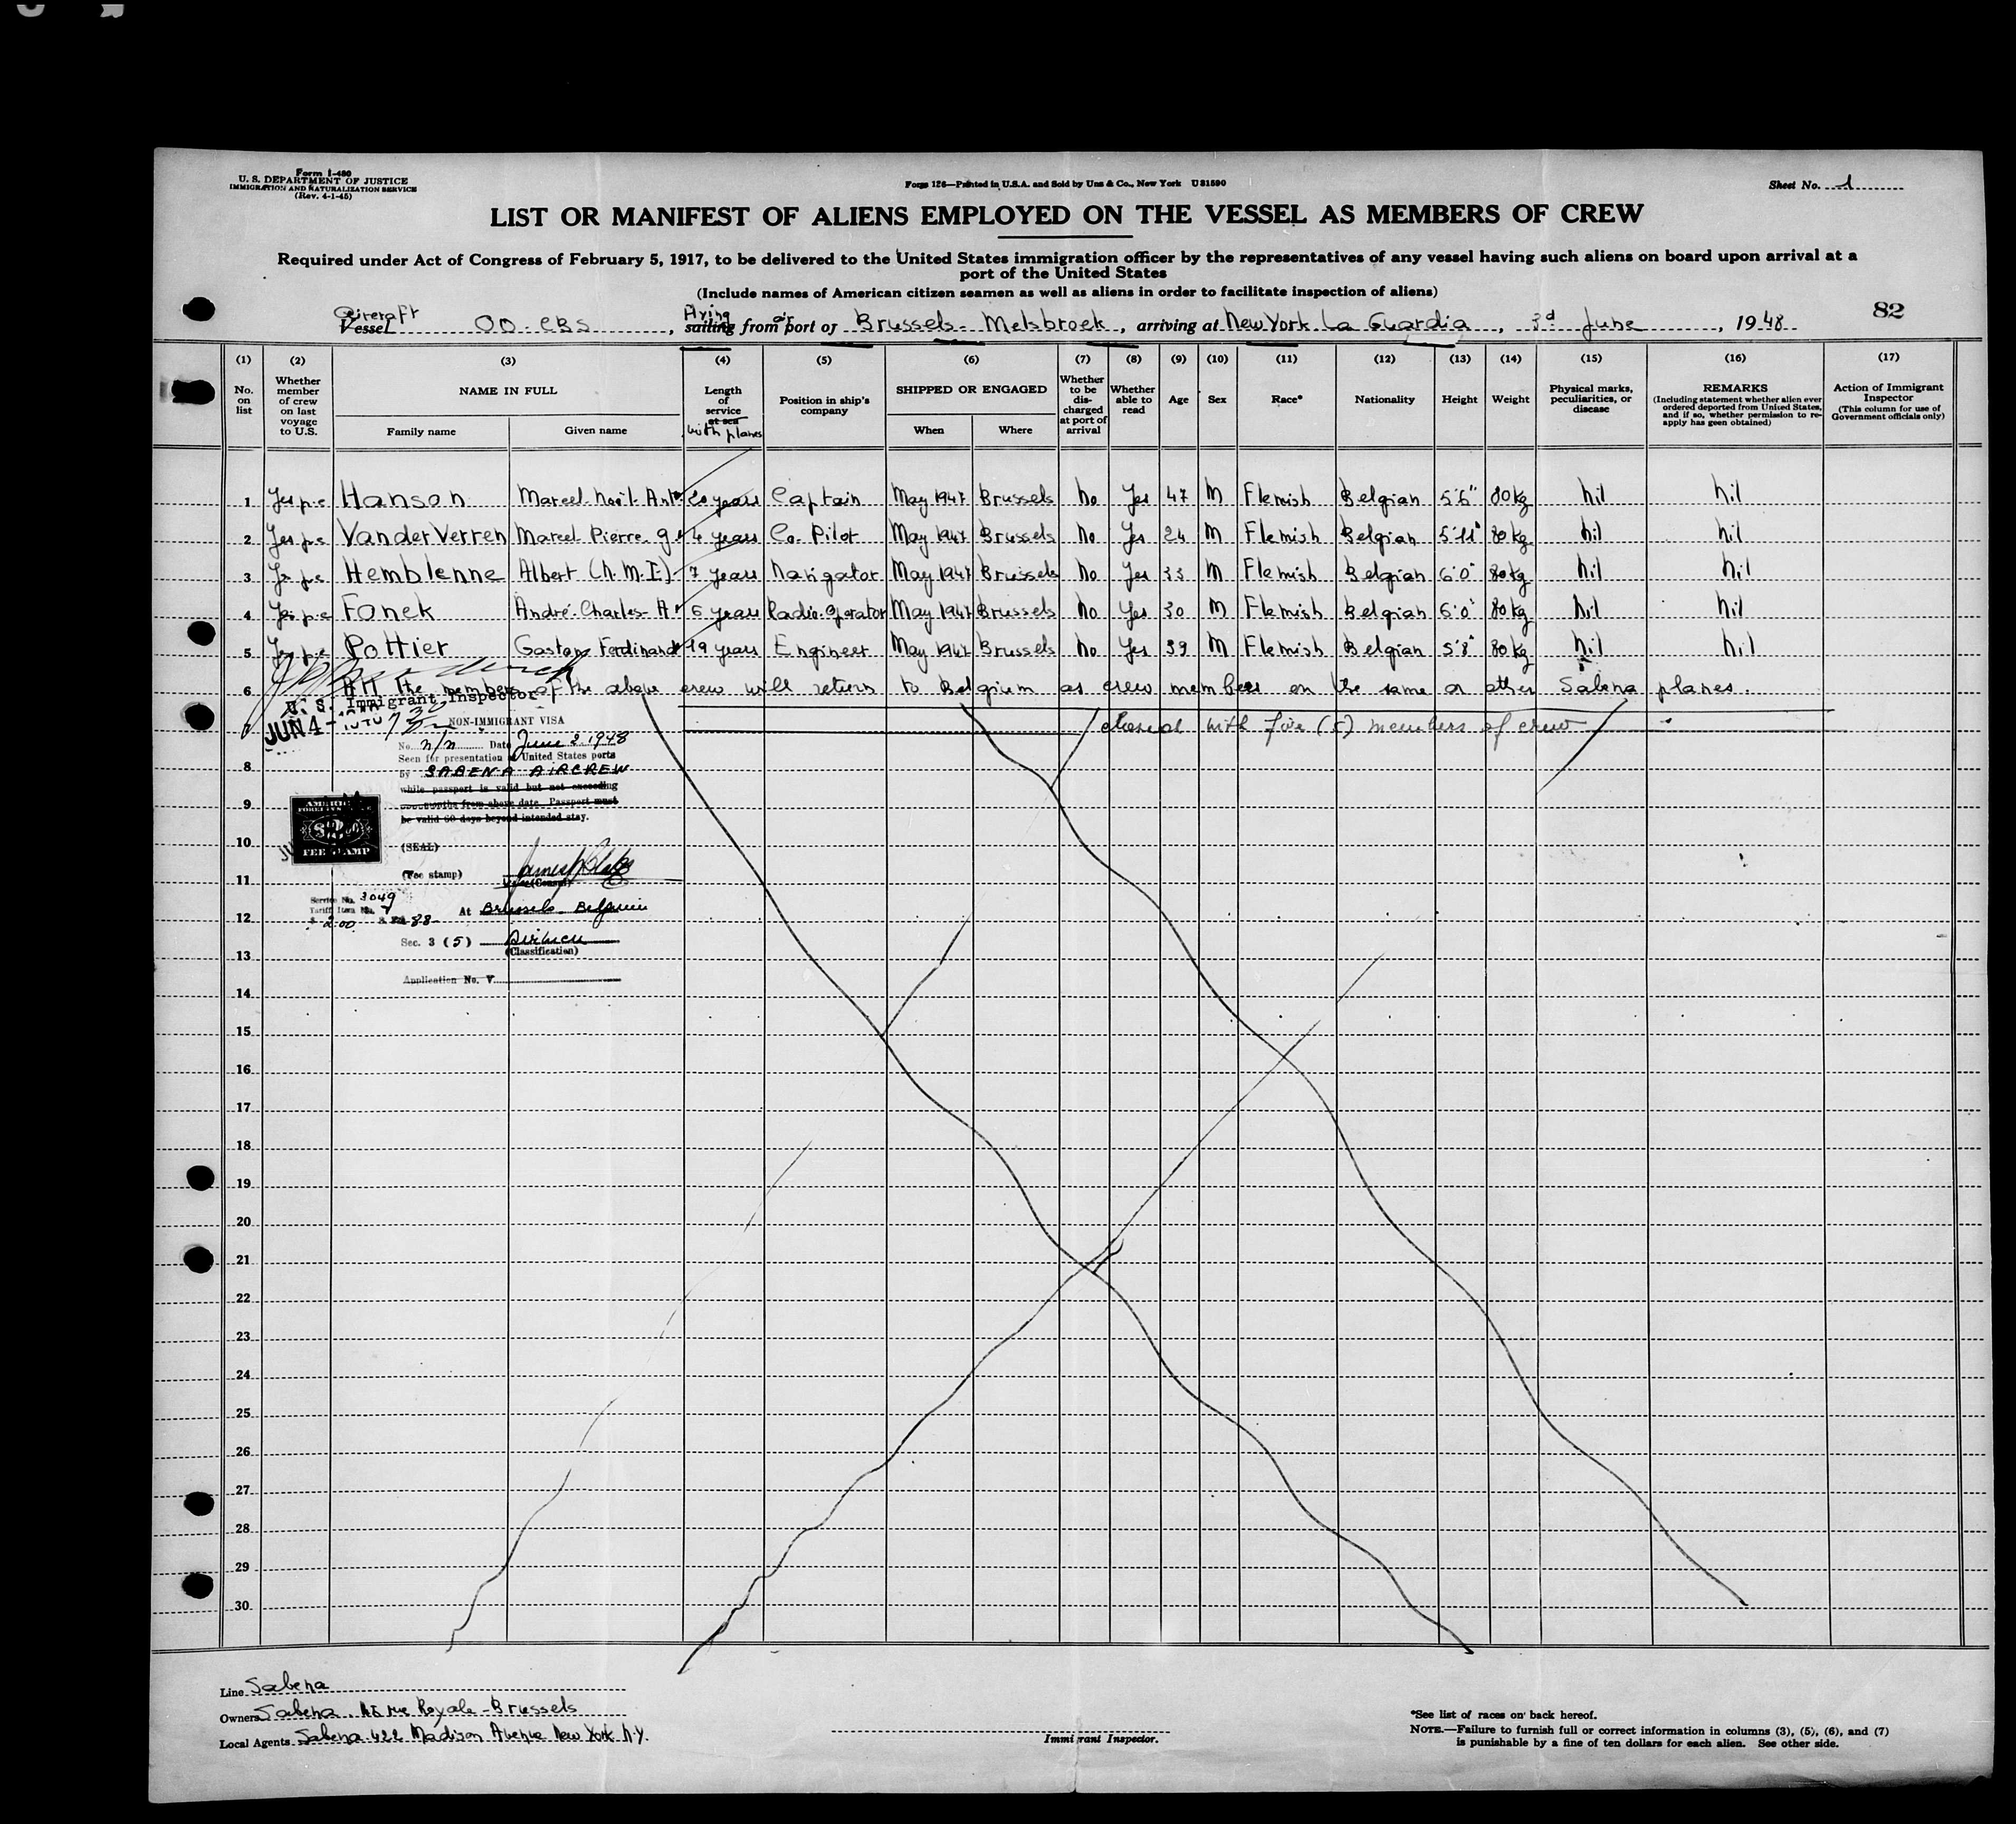 Form I-480
U. S. DEPARTMENT OF JUSTICE
IMMIGRATION AND NATURALIZATION SERVICE
(Rev. 4-1-45)
Form 126—Printed in U.S.A. and Sold by Unz & Co., New York U81590
Sheet No. 1
LIST OR MANIFEST OF ALIENS EMPLOYED ON THE VESSEL AS MEMBERS OF CREW
Required under Act of Congress of February 5, 1917, to be delivered to the United States immigration officer by the representatives of any vessel having such aliens on board upon arrival at a
port of the United States
(Include names of American citizen seamen as well as aliens in order to facilitate inspection of aliens)
82
Aircraft Flying air
Vessel OO-CBS, sailing from port of Brussels-Melsbroek, arriving at New York La Guardia, 3d June, 1948
(1) (2) (3) (4) (5) (6) (7) (8) (9) (10) (11) (12) (13) (14) (15) (16) (17)
No. on list
Whether member of crew on last voyage to U.S.
NAME IN FULL
Family name
Given name
Length of service at sea
with planes
Position in ship's company
SHIPPED OR ENGAGED
When
Where
Whether to be discharged at port of arrival
Whether able to read
Age
Sex
Race*
Nationality
Height
Weight
Physical marks, peculiarities, or disease
REMARKS
(Including statement whether alien ever ordered deported from United States, and if so, whether permission to re-apply has geen obtained)
Action of Immigrant Inspector
(This column for use of Government officials only)
1 Yes p.c Hanson Marcel. Noël. Ant. 20 years Captain May 1947 Brussels No Yes 47 M Flemish Belgian 5'6" 80 kg nil nil
2 Yes p.c VanderVerren Marcel Pierre. G. 4 years Co. Pilot May 1947 Brussels No Yes 24 M Flemish Belgian 5'11" 80 kg nil nil
3 Yes p.c Hemblenne Albert (N.M.I). 7 years Navigator May 1947 Brussels No Yes 33 M Flemish Belgian 6'0" 80 kg nil nil
4 Yes p.c Fonck André-Charles-A. 6 years Radio. Operator May 1947 Brussels No Yes 30 M Flemish Belgian 6'0" 80 kg nil nil
5 Yes p.c Pottier Gaston Ferdinand 19 years Engineer May 1947 Brussels No Yes 39 M Flemish Belgian 5'8" 80 kg nil nil
6 All the members of the above crew will return to Belgium as crew members on the same or other Sabena planes.
U. S. Immigrant Inspector
JUN 4 - 1948
7 closed with five (5) members of crew
NON-IMMIGRANT VISA
No. n/n Date June 2 1948
Seen for presentation at United States ports
8 by SABENA AIRCREW
while passport is valid but not exceeding
9 months from above date. Passport must
be valid 60 days beyond intended stay.
AMERICAN
FOREIGN SERVICE
$2.00
FEE STAMP
10 (SEAL)
(Fee stamp)
11
(Consul)
Service No. 3049
Tariff Item No. 7
At Brussels. Belgium
12 $ 2.00 88-
Sec. 3 (5)
(Classification)
13
Application No. V
14
15
16
17
18
19
20
21
22
23
24
25
26
27
28
29
30
Line Sabena
Owners Sabena. Royale-Brussels
Local Agents Sabena 422 Madison Avenue New York N.Y.
Immigrant Inspector.
*See list of races on back hereof.
NOTE.—Failure to furnish full or correct information in columns (3), (5), (6), and (7)
is punishable by a fine of ten dollars for each alien. See other side.